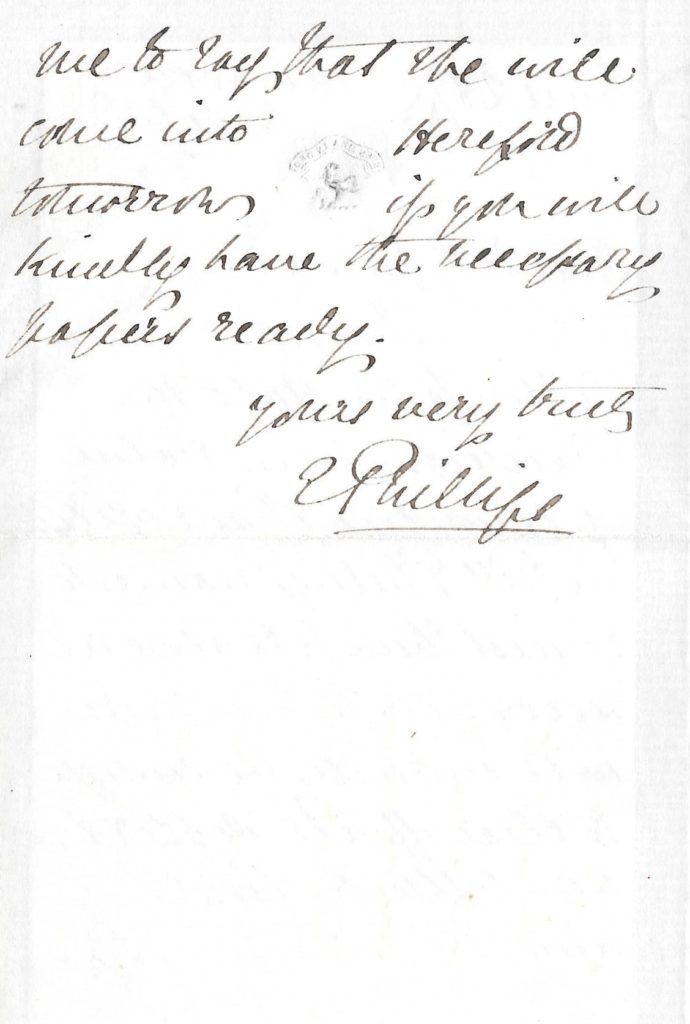 me to say that she will
come into Hereford
tomorrow if you will
kindly have the necessary
papers ready.
yours very truly
E Phillips